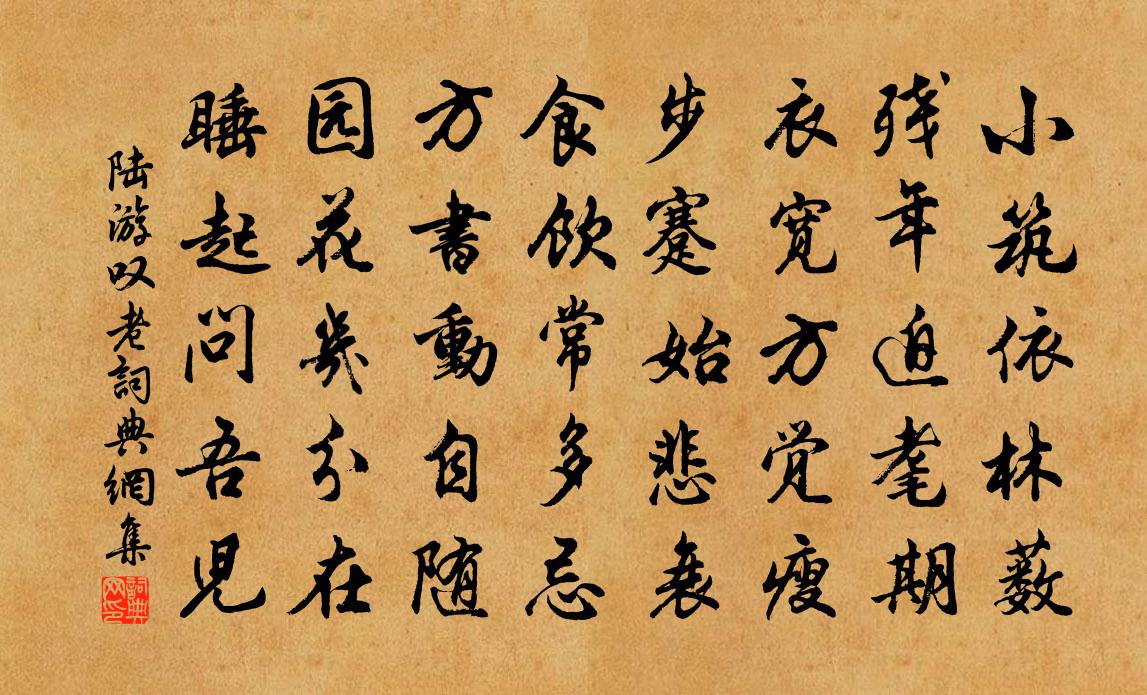 小筑依林薮
残年迫耄期
衣宽方觉瘦
步蹇始悲衰
食饮常多忌
方書動自随
园花幾分在
睡起問吾児
陆游叹老詞典網集
詞典网印